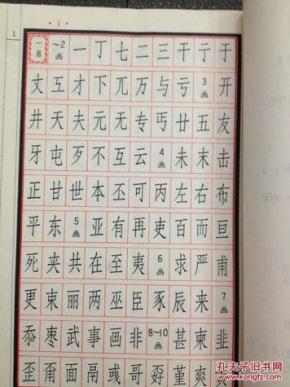 1
1.
一部 ~2画 一 丁 七 二 三 干 亍 于
丈 互 才 下 兀 万 与 亏 3画 开
井 天 夫 元 无 专 丐 廿 五 友
牙 屯 歹 不 互 云 4画 未 末 击
正 甘 世 本 丕 可 丙 左 右 布
平 东 5画 亚 有 再 吏 百 而 亘
死 夹 共 在 至 夷 6画 求 严 甫
更 束 丽 两 巫 臣 豕 辰 来 7画
忝 枣 武 事 画 非 8~10画 甚 柬 韭
歪 甭 面 彧 哥 夏
孔夫子旧书网